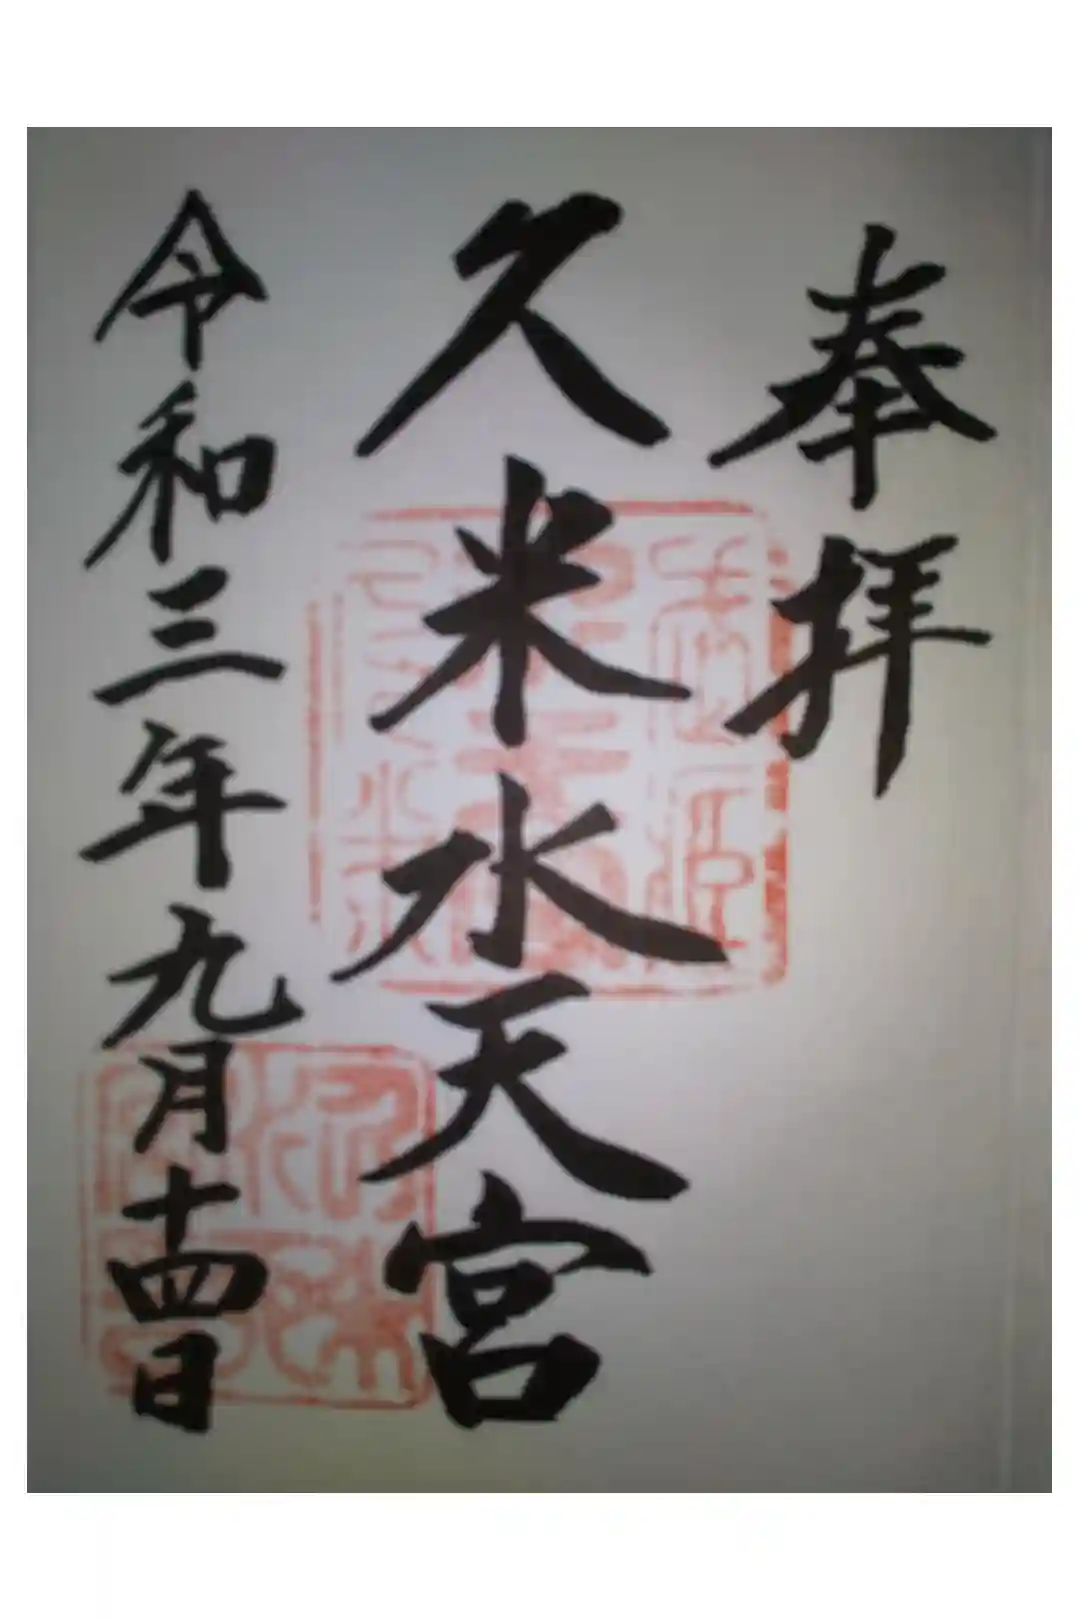 奉拝
久米水天宮
令和三年九月十四日